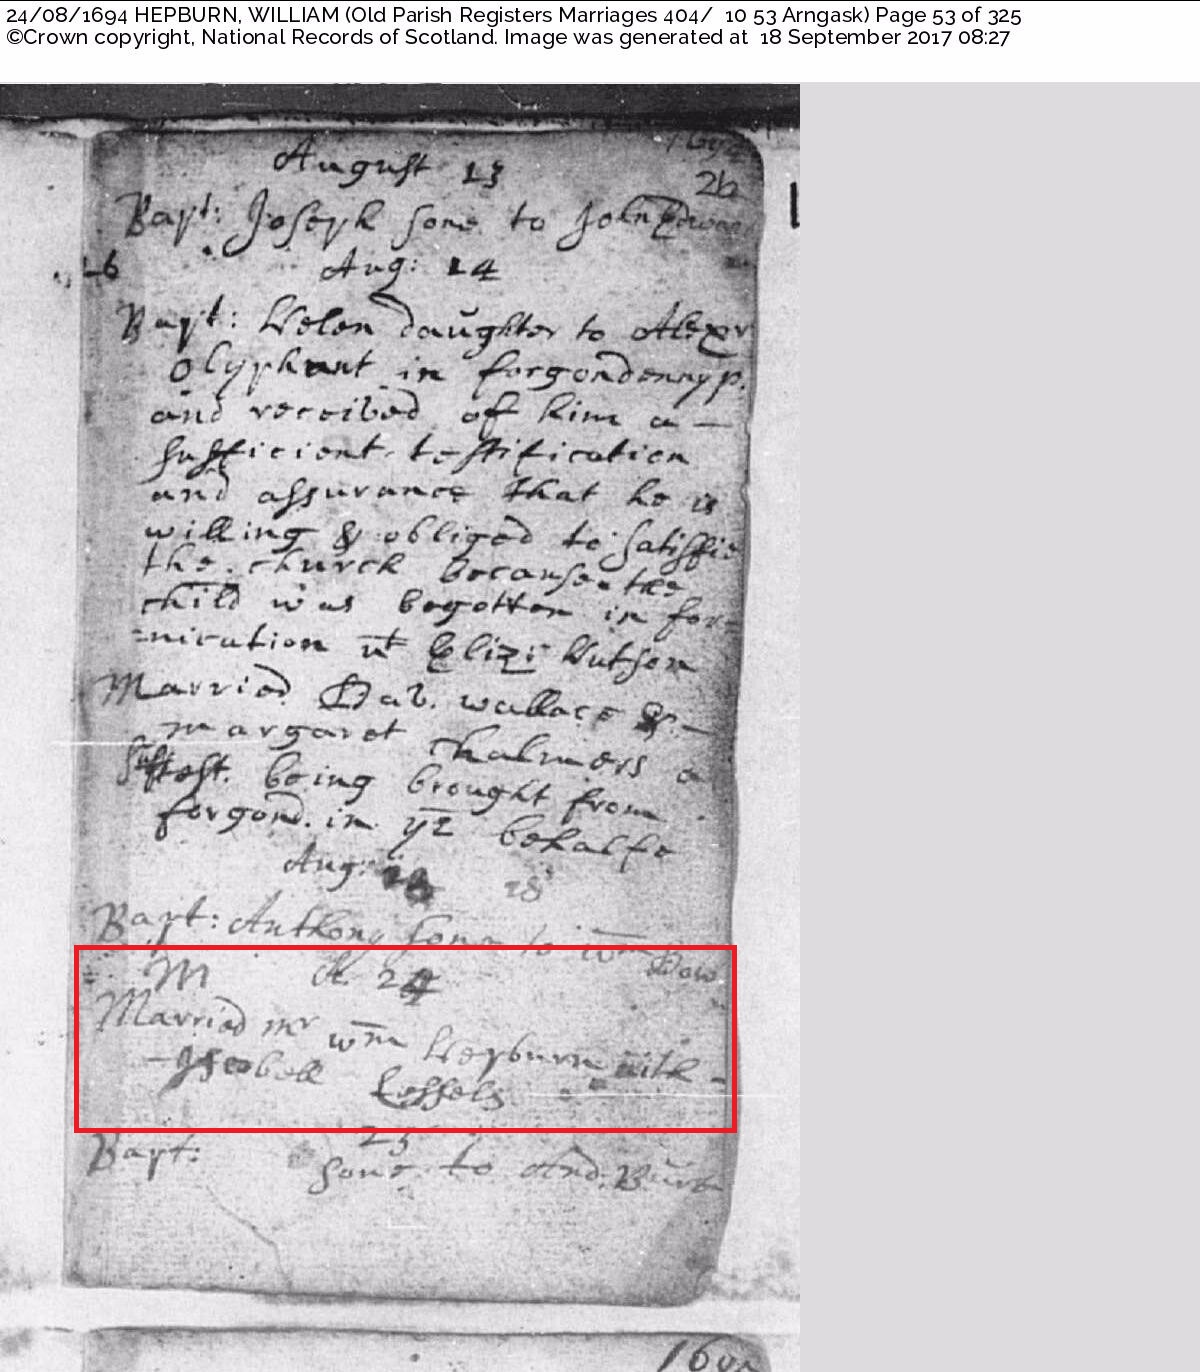 24/08/1694 HEPBURN, WILLIAM (Old Parish Registers Marriages 404/ 10 53 Arngask) Page 53 of 325
©Crown copyright, National Records of Scotland. Image was generated at 18 September 2017 08:27
169
26
August 13
Bapt: Joseph sone to John Edward
Aug: 14
Bapt: Helen daughter to Alexr
Olyphant in forgondenny p.
and received of him a —
sufficient testification
and assurance that he is
willing & obliged to satisfie
the church because the
child was begotten in for=
=nication wt Eliz: Hutson
Married Dav. wallace & —
margaret Chalmers a
suff test. being brought from
forgond. in yr behalfe
Aug: 18
Bapt: Anthony sone to wm Dow
M 24
Married mr wm Hepburn with -
- Issobell Lessels
25
Bapt: sone to And. Burt